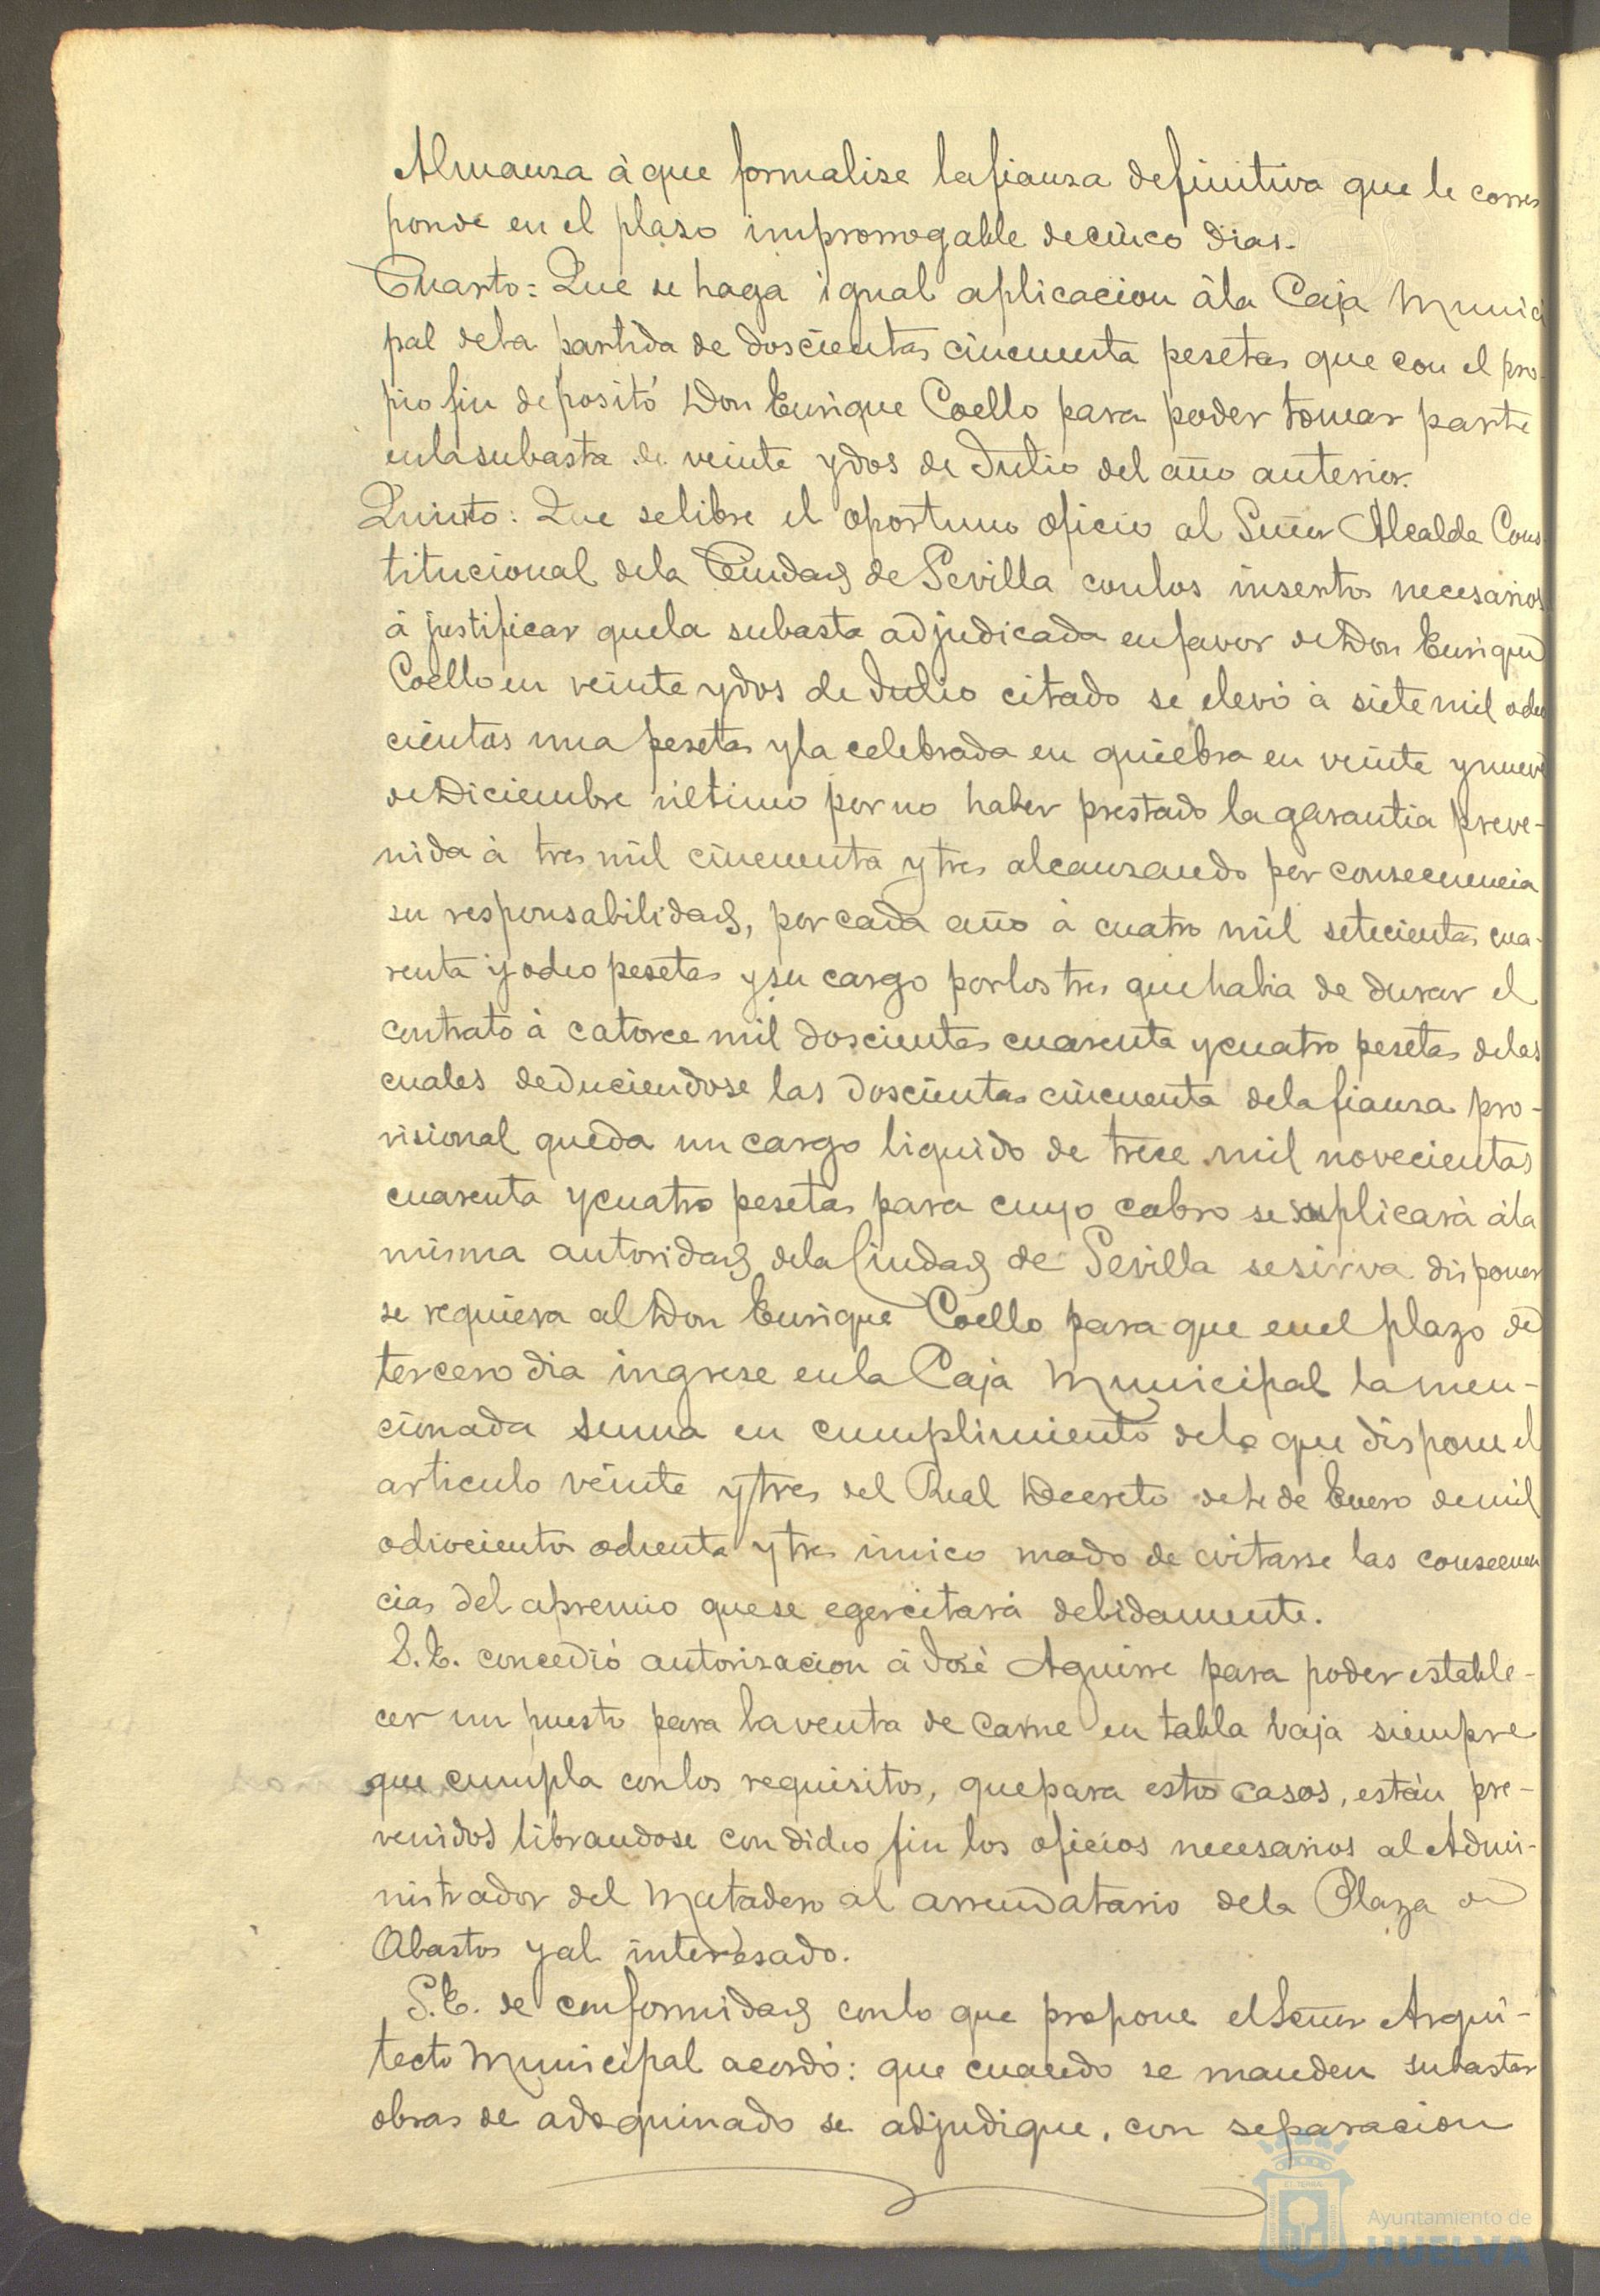 Almansa à que formalise la fianza definitiva que le corres
ponde en el plaso improrrogable de cinco dias.
Cuarto: Que se haga igual aplicacion à la Caja Munici
pal dela partida de doscientas cincuenta pesetas que con el pro-
pio fin depositó Don Enrique Coello para poder tomar parte
en la subasta de veinte y dos de Julio del año anterior.
Quinto: Que se libre el oportuno oficio al Señor Alcalde Cons
titucional dela Ciudad de Sevilla con los insertos necesarios
à justificar que la subasta adjudicada en favor de Don Enrique
Coello en veinte y dos de Julio citado se elevó à siete mil ocho
cientas una pesetas y la celebrada en quiebra en veinte y nueve
de Diciembre ùltimo por no haber prestado la garantia preve-
nida à tres mil cincuenta y tres alcansando por consecuencia
su responsabilidad, por cada año à cuatro mil setecientas cua-
renta y ocho pesetas y su cargo por los tres que habia de durar el
contrato à catorce mil doscientas cuarenta y cuatro pesetas delas
cuales deduciendose las doscientas cincuenta dela fianza pro-
visional queda un cargo liquido de trece mil novecientas
cuarenta y cuatro pesetas para cuyo cobro se suplicarà à la
misma autoridad dela Ciudad de Sevilla se sirva disponer
se requiera al Don Enrique Coello para que en el plazo de
tercero dia ingrese en la Caja Municipal la men-
cionada suma en cumplimiento delo que dispone el
articulo veinte y tres del Real Decreto de 4 de Enero de mil
ochocientos ochenta y tres ùnico modo de evitarse las consecuen
cias del apremio que se egercitarà debidamente.
S.E. concedió autorisacion à José Aguirre para poder estable-
cer un puesto para la venta de carne en tabla baja siempre
que cumpla con los requisitos, que para estos casos, estàn pre-
venidos librandose con dicho fin los oficios necesarios al Admi-
nistrador del Matadero al arrendatario dela Plaza de
Abastos y al interesado.
S.E. de conformidad con lo que propone el Señor Arqui-
tecto Municipal acordó: que cuando se manden subastar
obras de adoquinado se adjudique, con separacion
Ayuntamiento de
HUELVA